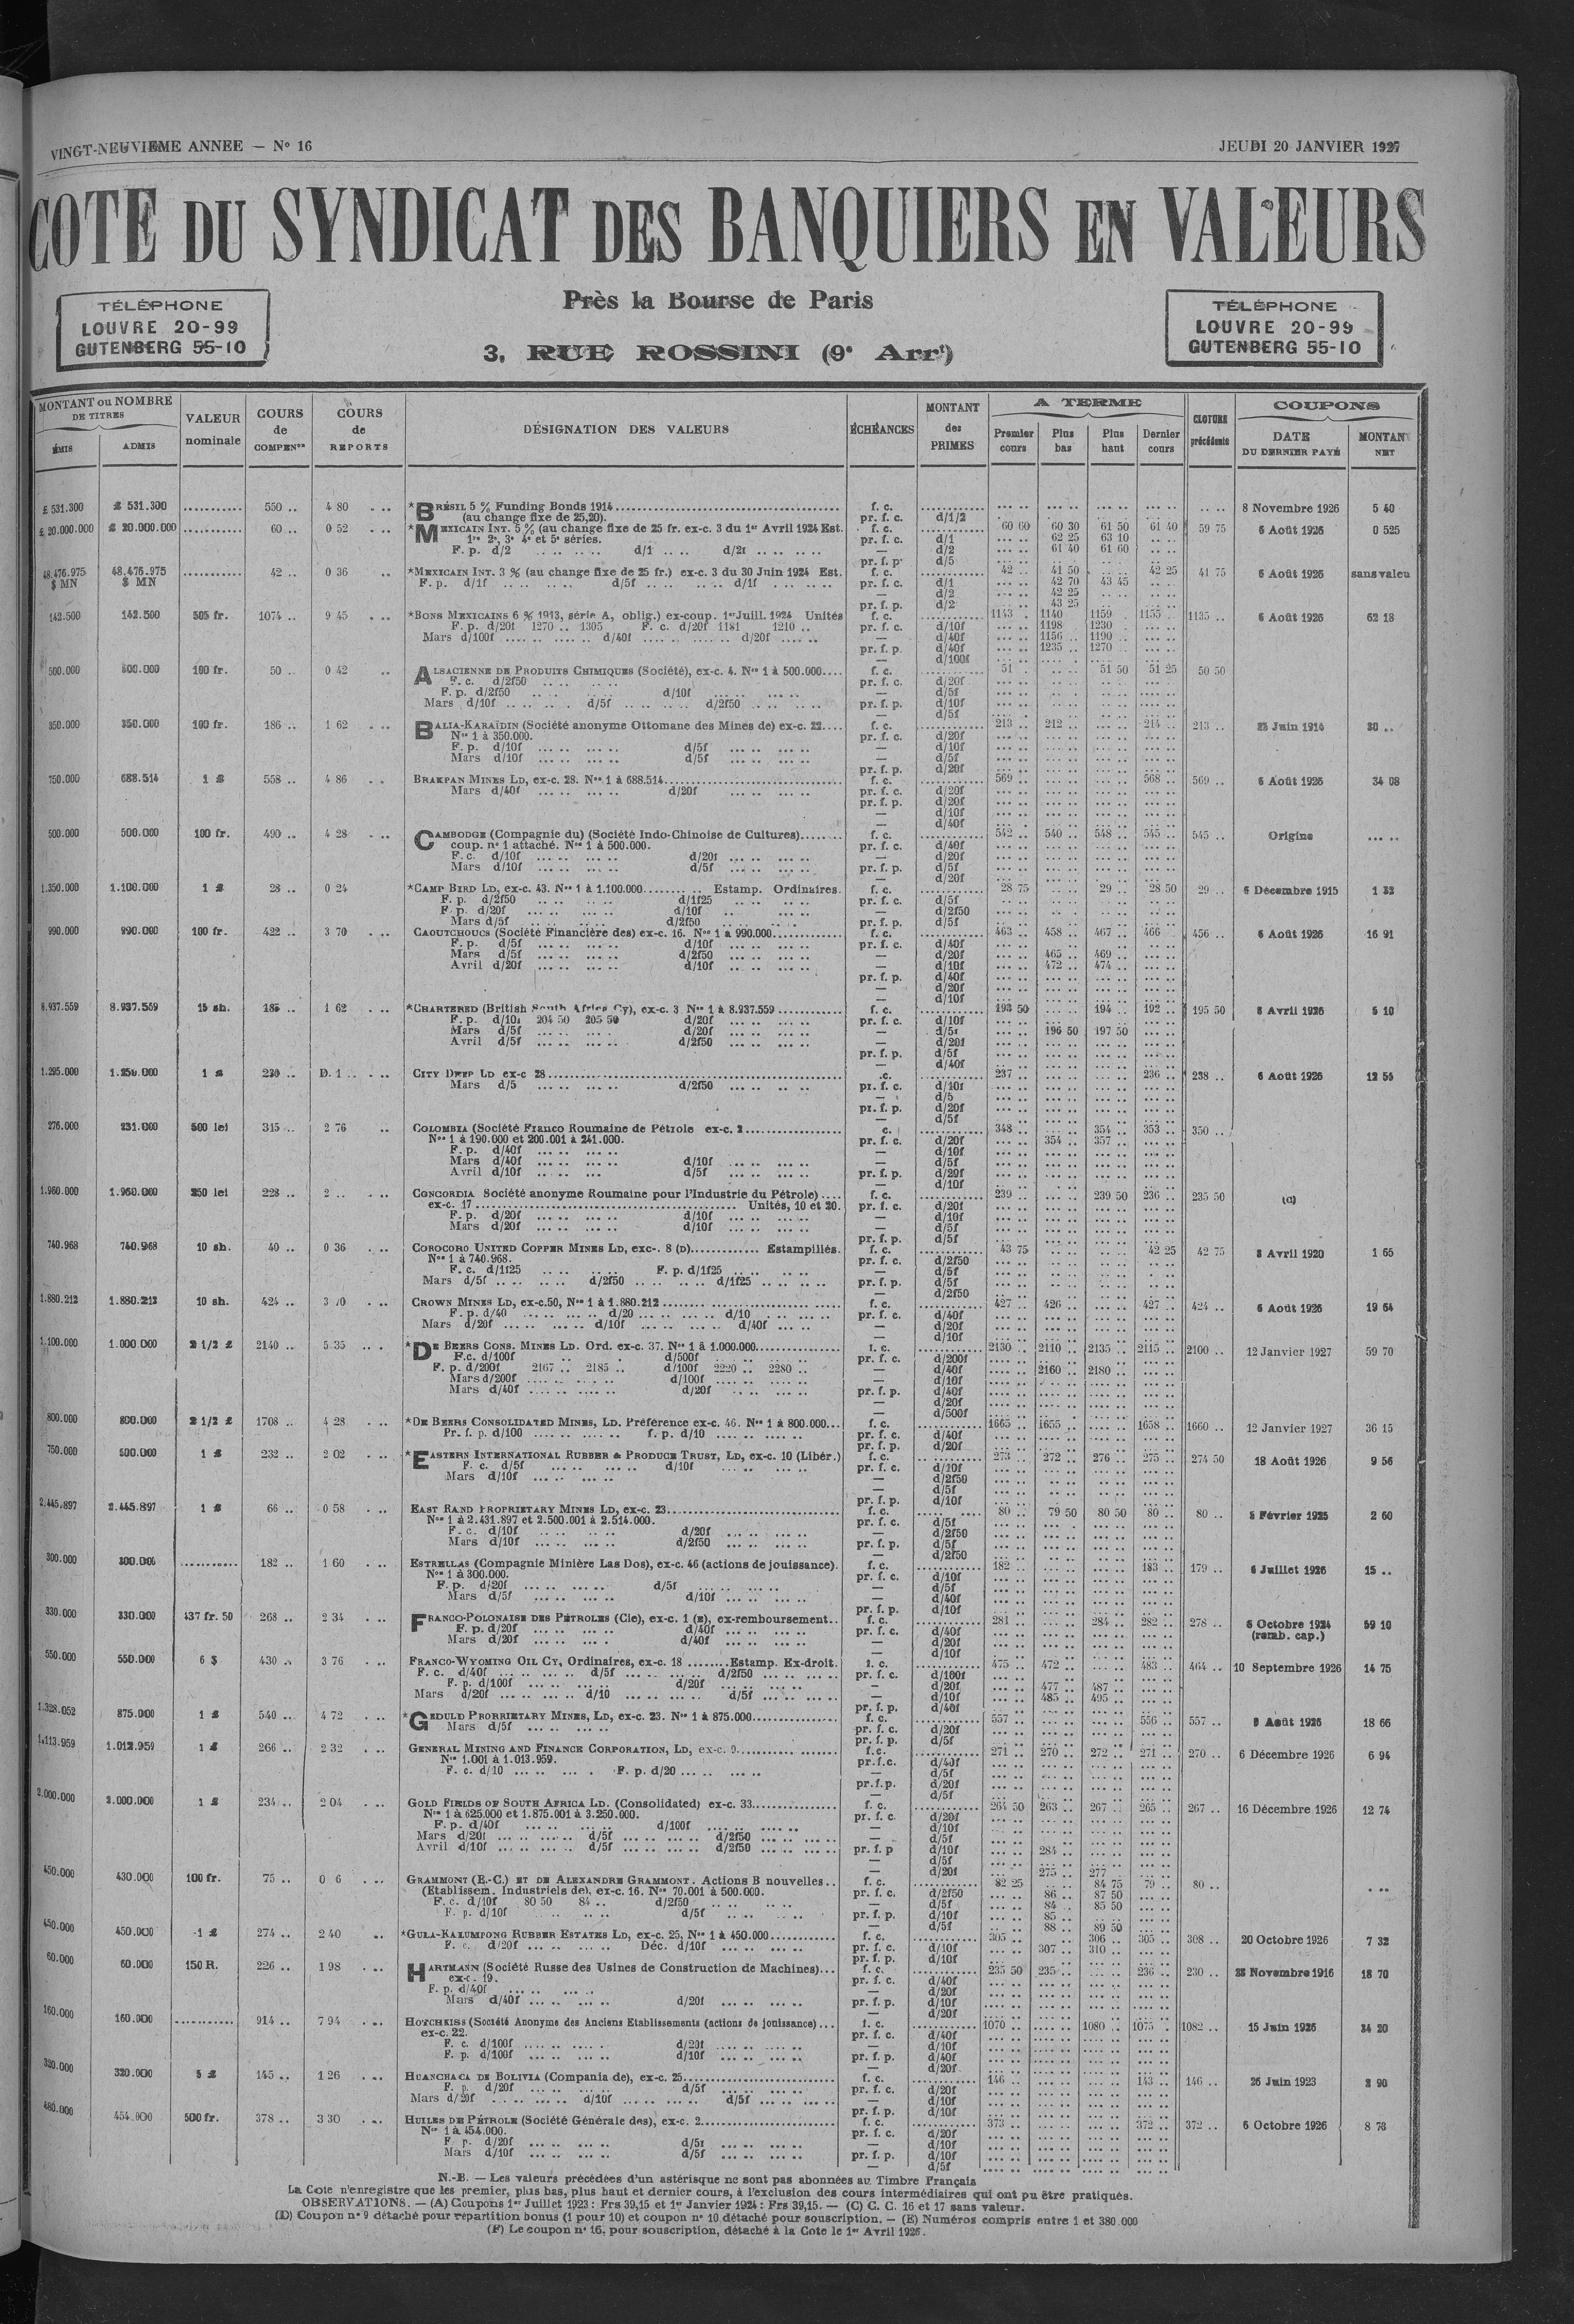 VINGT-NEUVIEME ANNEE — N° 16
JEUDI 20 JANVIER 1927
COTE DU SYNDICAT DES BANQUIERS EN VALEURS
Près la Bourse de Paris
3, RUE ROSSINI (9e Arrt)
TÉLÉPHONE
LOUVRE 20-99
GUTENBERG 55-10
TÉLÉPHONE
LOUVRE 20-99
GUTENBERG 55-10
MONTANT ou NOMBRE DE TITRES
ÉMIS ADMIS
VALEUR nominale
COURS de COMPENon
COURS de REPORTS
DÉSIGNATION DES VALEURS
ÉCHÉANCES
MONTANT des PRIMES
A TERME
Premier cours Plus bas Plus haut Dernier cours
CLOTURE précédente
COUPONS
DATE DU DERNIER PAYÉ MONTAN NET
£ 531.300 £ 531.300 ........... 550 .. 4 80 *BRÉSIL 5 % Funding Bonds 1914 f. c. 8 Novembre 1926 5 40
(au change fixe de 25,20). pr. f. c. d/1/2
£ 20.000.000 £ 20.000.000 ........... 60 .. 0 52 *MEXICAIN INT. 5 % (au change fixe de 25 fr. ex-c. 3 du 1er Avril 1924 Est. f. c. 60 60 60 30 61 50 61 40 59 75 6 Août 1926 0 525
1re 2e, 3e 4e et 5e séries. pr. f. c. d/1 62 25 63 10
F. p. d/2 d/1 d/2f — d/2 61 40 61 60
pr. f. p. d/5
48.476.975 $ MN 48.476.975 $ MN ........... 42 .. 0 36 *MEXICAIN INT. 3 % (au change fixe de 25 fr.) ex-c. 3 du 30 Juin 1924 Est. f. c. 42 .. 41 50 42 25 41 75 6 Août 1926 sans valeu
F. p. d/1f d/5f d/1f pr. f. c. d/1 42 70 43 45
— d/2 42 25
pr. f. p. d/2 43 25
142.500 142.500 505 fr. 1074 .. 9 45 *BONS MEXICAINS 6 % 1913, série A, oblig.) ex-coup. 1er Juill. 1924 Unités f. c. 1143 1140 1159 1155 .. 1135 .. 6 Août 1926 62 18
F. p. d/20f 1270 .. 1305 F. c. d/20f 1181 1210 .. pr. f. c. d/10f 1198 1230
Mars d/100f d/40f d/20f — d/40f 1156 .. 1190
pr. f. p. d/40f 1235 .. 1270
— d/100f
500.000 500.000 100 fr. 50 .. 0 42 ALSACIENNE DE PRODUITS CHIMIQUES (Société), ex-c. 4. Nos 1 à 500.000 f. c. 51 . 51 50 51 25 50 50
F. c. d/2f50 pr. f. c. d/20f
F. p. d/2f50 d/10f — d/5f
Mars d/10f d/5f d/2f50 pr. f. p. d/10f
— d/5f
350.000 350.000 100 fr. 186 .. 1 62 BALIA-KARAÏDIN (Société anonyme Ottomane des Mines de) ex-c. 22 f. c. 213 .. 212 .. 214 .. 213 .. 23 Juin 1914 30 ..
Nos 1 à 350.000. pr. f. c. d/20f
F. p. d/10f d/5f — d/10f
Mars d/10f d/5f — d/5f
pr. f. p. d/20f
750.000 688.514 1 £ 558 .. 4 86 BRAKPAN MINES LD, ex-c. 28. Nos 1 à 688.514 f. c. 569 .. 568 .. 569 .. 6 Août 1926 34 08
Mars d/40f d/20f pr. f. c. d/20f
pr. f. p. d/20f
— d/10f
— d/40f
500.000 500.000 100 fr. 490 .. 4 28 CAMBODGE (Compagnie du) (Société Indo-Chinoise de Cultures) f. c. 542 .. 540 .. 548 .. 545 .. 545 .. Origine
coup. n° 1 attaché. Nos 1 à 500.000. pr. f. c. d/40f
F. c. d/10f d/20f — d/20f
Mars d/10f d/5f pr. f. p. d/5f
— d/20f
1.350.000 1.100.000 1 £ 28 .. 0 24 *CAMP BIRD LD, ex-c. 43. Nos 1 à 1.100.000 Estamp. Ordinaires. f. c. 28 75 29 .. 28 50 29 .. 6 Décembre 1915 1 32
F. p. d/2f50 d/1f25 pr. f. c. d/5f
F. p. d/20f d/10f — d/2f50
Mars d/5f d/2f50 pr. f. p. d/5f
990.000 990.000 100 fr. 422 .. 3 70 CAOUTCHOUCS (Société Financière des) ex-c. 16. Nos 1 à 990.000 f. c. 463 .. 458 .. 467 .. 466 .. 456 .. 6 Août 1926 16 91
F. p. d/5f d/10f pr. f. c. d/40f
Mars d/5f d/2f50 — d/20f 465 .. 469 ..
Avril d/20f d/10f — d/10f 472 .. 474 ..
pr. f. p. d/40f
— d/20f
— d/10f
8.937.559 8.937.559 15 sh. 185 .. 1 62 *CHARTERED (British South Africa Cy), ex-c. 3 Nos 1 à 8.937.559 f. c. 193 50 194 .. 192 .. 195 50 8 Avril 1926 5 10
F. p. d/10f 204 50 205 50 d/20f pr. f. c. d/10f
Mars d/5f d/20f — d/5f 196 50 197 50
Avril d/5f d/2f50 — d/20f
pr. f. p. d/5f
— d/40f
1.295.000 1.250.000 1 £ 230 .. D. 1 .. CITY DEEP LD ex-c 28 .c. 237 .. 236 .. 238 .. 6 Août 1926 12 55
Mars d/5 d/2f50 pr. f. c. d/10f
— d/5
pr. f. p. d/20f
— d/5f
276.000 231.000 500 lei 315 .. 2 76 COLOMBIA (Société Franco Roumaine de Pétrole ex-c. 2 c. 348 .. 354 .. 353 .. 350 ..
Nos 1 à 190.000 et 200.001 à 241.000. pr. f. c. d/20f 354 .. 357 ..
F. p. d/40f — d/10f
Mars d/40f d/10f — d/5f
Avril d/10f d/5f pr. f. p. d/20f
— d/10f
1.960.000 1.960.000 250 lei 228 .. 2 .. CONCORDIA Société anonyme Roumaine pour l'Industrie du Pétrole) f. c. 239 .. 239 50 236 .. 235 50 (C)
ex-c. 17 Unités, 10 et 20. pr. f. c. d/20f
F. p. d/20f d/10f — d/10f
Mars d/20f d/10f — d/5f
pr. f. p. d/5f
740.968 740.968 10 sh. 40 .. 0 36 COROCORO UNITED COPPER MINES LD, exc-. 8 (D) Estampillés. f. c. 43 75 42 25 42 75 8 Avril 1920 1 65
Nos 1 à 740.968. pr. f. c. d/2f50
F. c. d/1f25 F. p. d/1f25 — d/5f
Mars d/5f d/2f50 d/1f25 pr. f. p. d/5f
— d/2f50
1.880.212 1.880.212 10 sh. 424 .. 3 70 CROWN MINES LD, ex-c.50, Nos 1 à 1.880.212 f. c. 427 .. 426 .. 427 .. 424 .. 6 Août 1926 19 64
F. p. d/40 d/20 d/10 pr. f. c. d/40f
Mars d/20f d/10f d/40f — d/20f
— d/10f
1.100.000 1.000.000 2 1/2 £ 2140 .. 5 35 *DE BEERS CONS. MINES LD. Ord. ex-c. 37. Nos 1 à 1.000.000 f. c. 2130 .. 2110 .. 2135 .. 2115 .. 2100 .. 12 Janvier 1927 59 70
F.c. d/100f d/500f pr. f. c. d/200f
F. p. d/200f 2167 .. 2185 .. d/100f 2220 .. 2280 .. — d/40f 2160 .. 2180 ..
Mars d/200f d/100f — d/10f
Mars d/40f d/20f pr. f. p. d/40f
— d/20f
— d/500f
800.000 800.000 2 1/2 £ 1708 .. 4 28 *DE BEERS CONSOLIDATED MINES, LD. Préférence ex-c. 46. Nos 1 à 800.000 f. c. 1665 .. 1655 .. 1658 .. 1660 .. 12 Janvier 1927 36 15
Pr. f. p. d/100 f. p. d/10 pr. f. c. d/40f
pr. f. p. d/20f
750.000 500.000 1 £ 232 .. 2 02 *EASTERN INTERNATIONAL RUBBER & PRODUCE TRUST, LD, ex-c. 10 (Libér.) f. c. 273 .. 272 .. 276 .. 275 .. 274 50 18 Août 1926 9 56
F. c. d/5f d/10f pr. f. c. d/10f
Mars d/10f — d/2f50
— d/5f
pr. f. p. d/10f
2.445.897 2.445.897 1 £ 66 .. 0 58 EAST RAND PROPRIETARY MINES LD, ex-c. 23 f. c. 80 .. 79 50 80 50 80 .. 80 .. 8 Février 1925 2 60
Nos 1 à 2.431.897 et 2.500.001 à 2.514.000. pr. f. c. d/5f
F. c. d/10f d/20f — d/2f50
Mars d/10f d/2f50 pr. f. p. d/5f
— d/2f50
300.000 300.000 ........... 182 .. 1 60 ESTRELLAS (Compagnie Minière Las Dos), ex-c. 46 (actions de jouissance). f. c. 182 .. 183 .. 179 .. 6 Juillet 1926 15 ..
Nos 1 à 300.000. pr. f. c. d/10f
F. p. d/20f d/5f — d/5f
Mars d/5f d/10f — d/40f
pr. f. p. d/10f
330.000 330.000 437 fr. 50 268 .. 2 34 FRANCO-POLONAISE DES PÉTROLES (Cie), ex-c. 1 (E), ex-remboursement f. c. 281 .. 284 .. 282 .. 278 .. 6 Octobre 1924 59 10
F. p. d/20f d/40f pr. f. c. d/40f (remb. cap.)
Mars d/20f d/40f — d/20f
— d/10f
550.000 550.000 6 $ 430 .. 3 76 FRANCO-WYOMING OIL CY, Ordinaires, ex-c. 18 Estamp. Ex-droit. f. c. 475 .. 472 .. 483 .. 464 .. 10 Septembre 1926 14 75
F. c. d/40f d/5f d/2f50 pr. f. c. d/100f
F. p. d/100f d/20f — d/20f 477 .. 487 ..
Mars d/20f d/10 d/5f — d/10f 485 .. 495 ..
pr. f. p. d/40f
1.328.052 875.000 1 £ 540 .. 4 72 *GEDULD PRORRIETARY MINES, LD, ex-c. 23. Nos 1 à 875.000 f. c. 557 .. 556 .. 557 .. 8 Août 1926 18 66
Mars d/5f pr. f. c. d/20f
pr. f. p. d/5f
1.113.959 1.012.959 1 £ 266 .. 2 32 GENERAL MINING AND FINANCE CORPORATION, LD, ex-c. 9 f.c. 271 .. 270 .. 272 .. 271 .. 270 .. 6 Décembre 1926 6 94
Nos 1.001 à 1.013.959. pr.f.c. d/40f
F. c. d/10 F. p. d/20 — d/5f
pr.f.p. d/20f
— d/5f
2.000.000 2.000.000 1 £ 234 .. 2 04 GOLD FIELDS OF SOUTH AFRICA LD. (Consolidated) ex-c. 33 f. c. 264 50 263 .. 267 .. 265 .. 267 .. 16 Décembre 1926 12 74
Nos 1 à 625.000 et 1.875.001 à 3.250.000. pr. f. c. d/20f
F. p. d/40f d/100f — d/10f
Mars d/20f d/5f d/2f50 — d/5f
Avril d/10f d/5f d/2f50 pr. f. p d/10f 284 ..
— d/5f
— d/20f 275 .. 277
450.000 430.000 100 fr. 75 .. 0 6 GRAMMONT (E.-C.) ET DE ALEXANDRE GRAMMONT. Actions B nouvelles f. c. 82 25 84 75 79 .. 80 ..
(Etablissem. Industriels de), ex-c. 16. Nos 70.001 à 500.000. pr. f. c. d/2f50 86 .. 87 50
F. c. d/10f 80 50 84 .. d/2f50 — d/5f 84 .. 85 50
F. p. d/10f d/5f pr. f. p. d/10f 85 ..
— d/5f 88 .. 89 50
450.000 450.000 1 £ 274 .. 2 40 *GULA-KALUMPONG RUBBER ESTATES LD, ex-c. 25, Nos 1 à 450.000 f. c. 305 .. 306 .. 305 .. 308 .. 20 Octobre 1926 7 32
F. c. d/20f Déc. d/10f pr. f. c. d/10f 307 .. 310 ..
pr. f. p. d/10f
60.000 60.000 150 R. 226 .. 1 98 HARTMANN (Société Russe des Usines de Construction de Machines) f. c. 235 50 235 .. 236 .. 230 .. 23 Novembre 1916 18 70
ex-c. 19. pr. f. c. d/40f
F. p. d/40f — d/20f
Mars d/40f d/20f pr. f. p. d/10f
— d/20f
160.000 160.000 ........... 914 .. 7 94 HOTCHKISS (Société Anonyme des Anciens Etablissements (actions de jouissance) f. c. 1070 .. 1080 .. 1075 . 1082 .. 15 Juin 1926 34 20
ex-c. 22. pr. f. c. d/40f
F. c. d/100f d/20f — d/10f
F. p. d/100f d/10f pr. f. p. d/40f
— d/20f
320.000 320.000 5 £ 145 .. 1 26 HUANCHACA DE BOLIVIA (Compania de), ex-c. 25 f. c. 146 .. 143 .. 146 .. 26 Juin 1923 2 90
F. p. d/20f d/5f pr. f. c. d/20f
Mars d/20f d/10f d/5f — d/10f
pr. f. p. d/10f
480.000 454.000 500 fr. 378 .. 3 30 HUILES DE PÉTROLE (Société Générale des), ex-c. 2 f. c. 373 .. 372 .. 372 .. 6 Octobre 1926 8 78
Nos 1 à 454.000. pr. f. c. d/20f
F. p. d/20f d/5f — d/10f
Mars d/10f d/5f pr. f. p. d/10f
— d/5f
N.-B. — Les valeurs précédées d'un astérisque ne sont pas abonnées au Timbre Français
La Cote n'enregistre que les premier, plus bas, plus haut et dernier cours, à l'exclusion des cours intermédiaires qui ont pu être pratiqués.
OBSERVATIONS. — (A) Coupons 1er Juillet 1923 : Frs 39,15 et 1er Janvier 1924 : Frs 39,15. — (C) C. C. 16 et 17 sans valeur.
(D) Coupon n° 9 détaché pour répartition bonus (1 pour 10) et coupon n° 10 détaché pour souscription. — (E) Numéros compris entre 1 et 380 000
(F) Le coupon n° 16, pour souscription, détaché à la Cote le 1er Avril 1926.